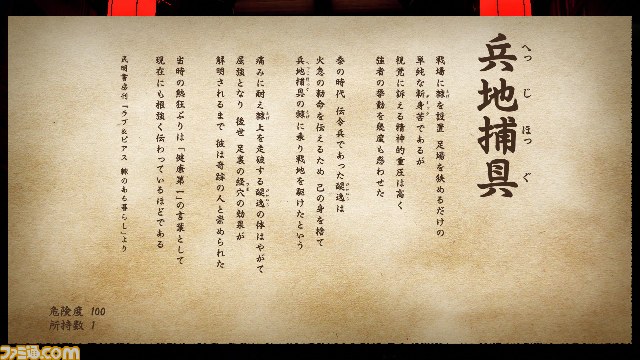 兵地捕具
へっじほっぐ
戦場に棘を設置 足場を狭めるだけの
単純な新身苦であるが
視覚に訴える精神的重圧は高く
強者の挙動を幾度も惑わせた
秦の時代 伝令兵であった醍逸は
火急の勅命を伝えるため 己の身を捨て
兵地捕具の棘に乗り戦地を駆けたという
痛みに耐え棘上を走破する醍逸の体はやがて
屈強となり 後世 足裏の経穴の効果が
解明されるまで 彼は奇跡の人と崇められた
当時の熱狂ぶりは「健康第一」の言葉として
現在にも根強く伝わっているほどである
民明書房刊「ラブ&ピアス 棘のある暮らし」より
危険度 100
所持数 1
ファミ通.com